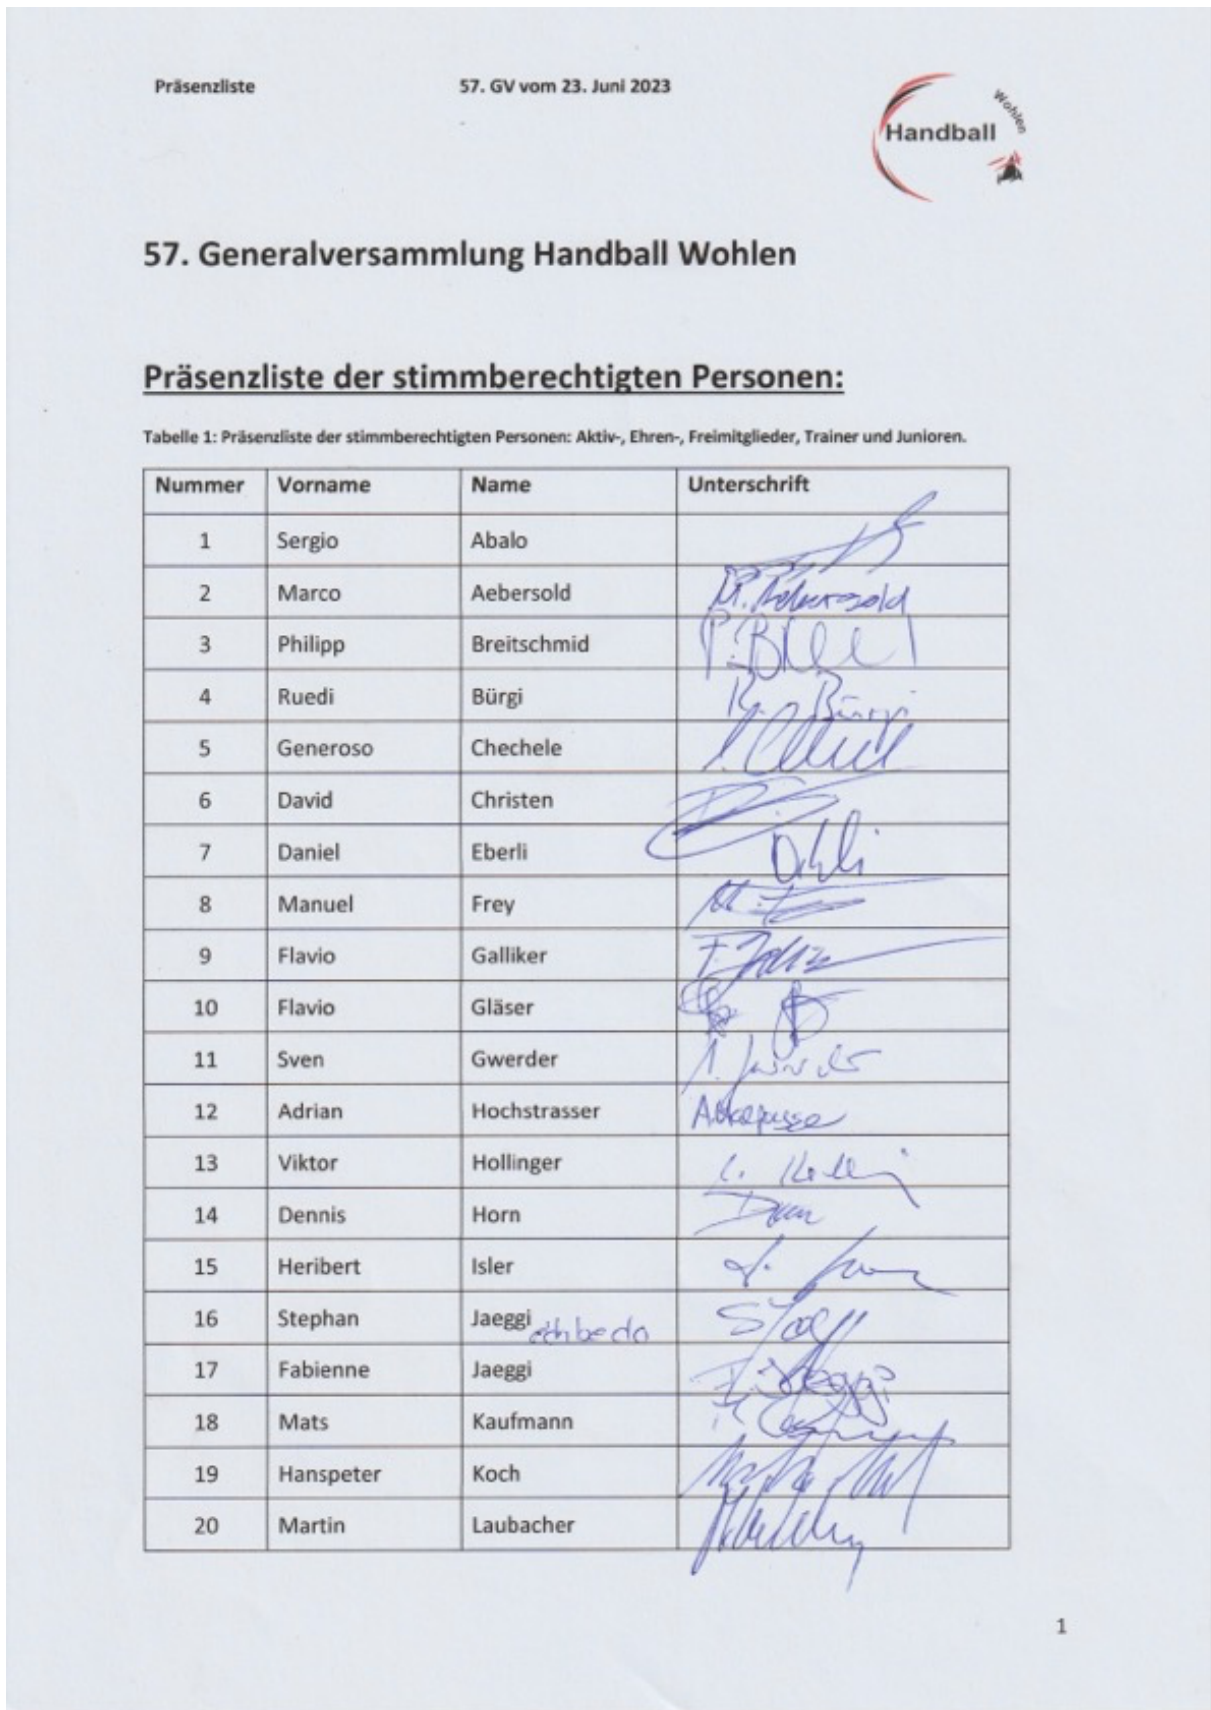 Präsenzliste 57. GV vom 23. Juni 2023
Wohlen
Handball
57. Generalversammlung Handball Wohlen
Präsenzliste der stimmberechtigten Personen:
Tabelle 1: Präsenzliste der stimmberechtigten Personen: Aktiv-, Ehren-, Freimitglieder, Trainer und Junioren.
Nummer Vorname Name Unterschrift
1 Sergio Abalo
2 Marco Aebersold M. Aebersold
3 Philipp Breitschmid
4 Ruedi Bürgi R. Bürgi
5 Generoso Chechele
6 David Christen
7 Daniel Eberli
8 Manuel Frey
9 Flavio Galliker
10 Flavio Gläser
11 Sven Gwerder
12 Adrian Hochstrasser
13 Viktor Hollinger
14 Dennis Horn
15 Heribert Isler
16 Stephan Jaeggi
17 Fabienne Jaeggi F. Jaeggi
18 Mats Kaufmann
19 Hanspeter Koch
20 Martin Laubacher
1